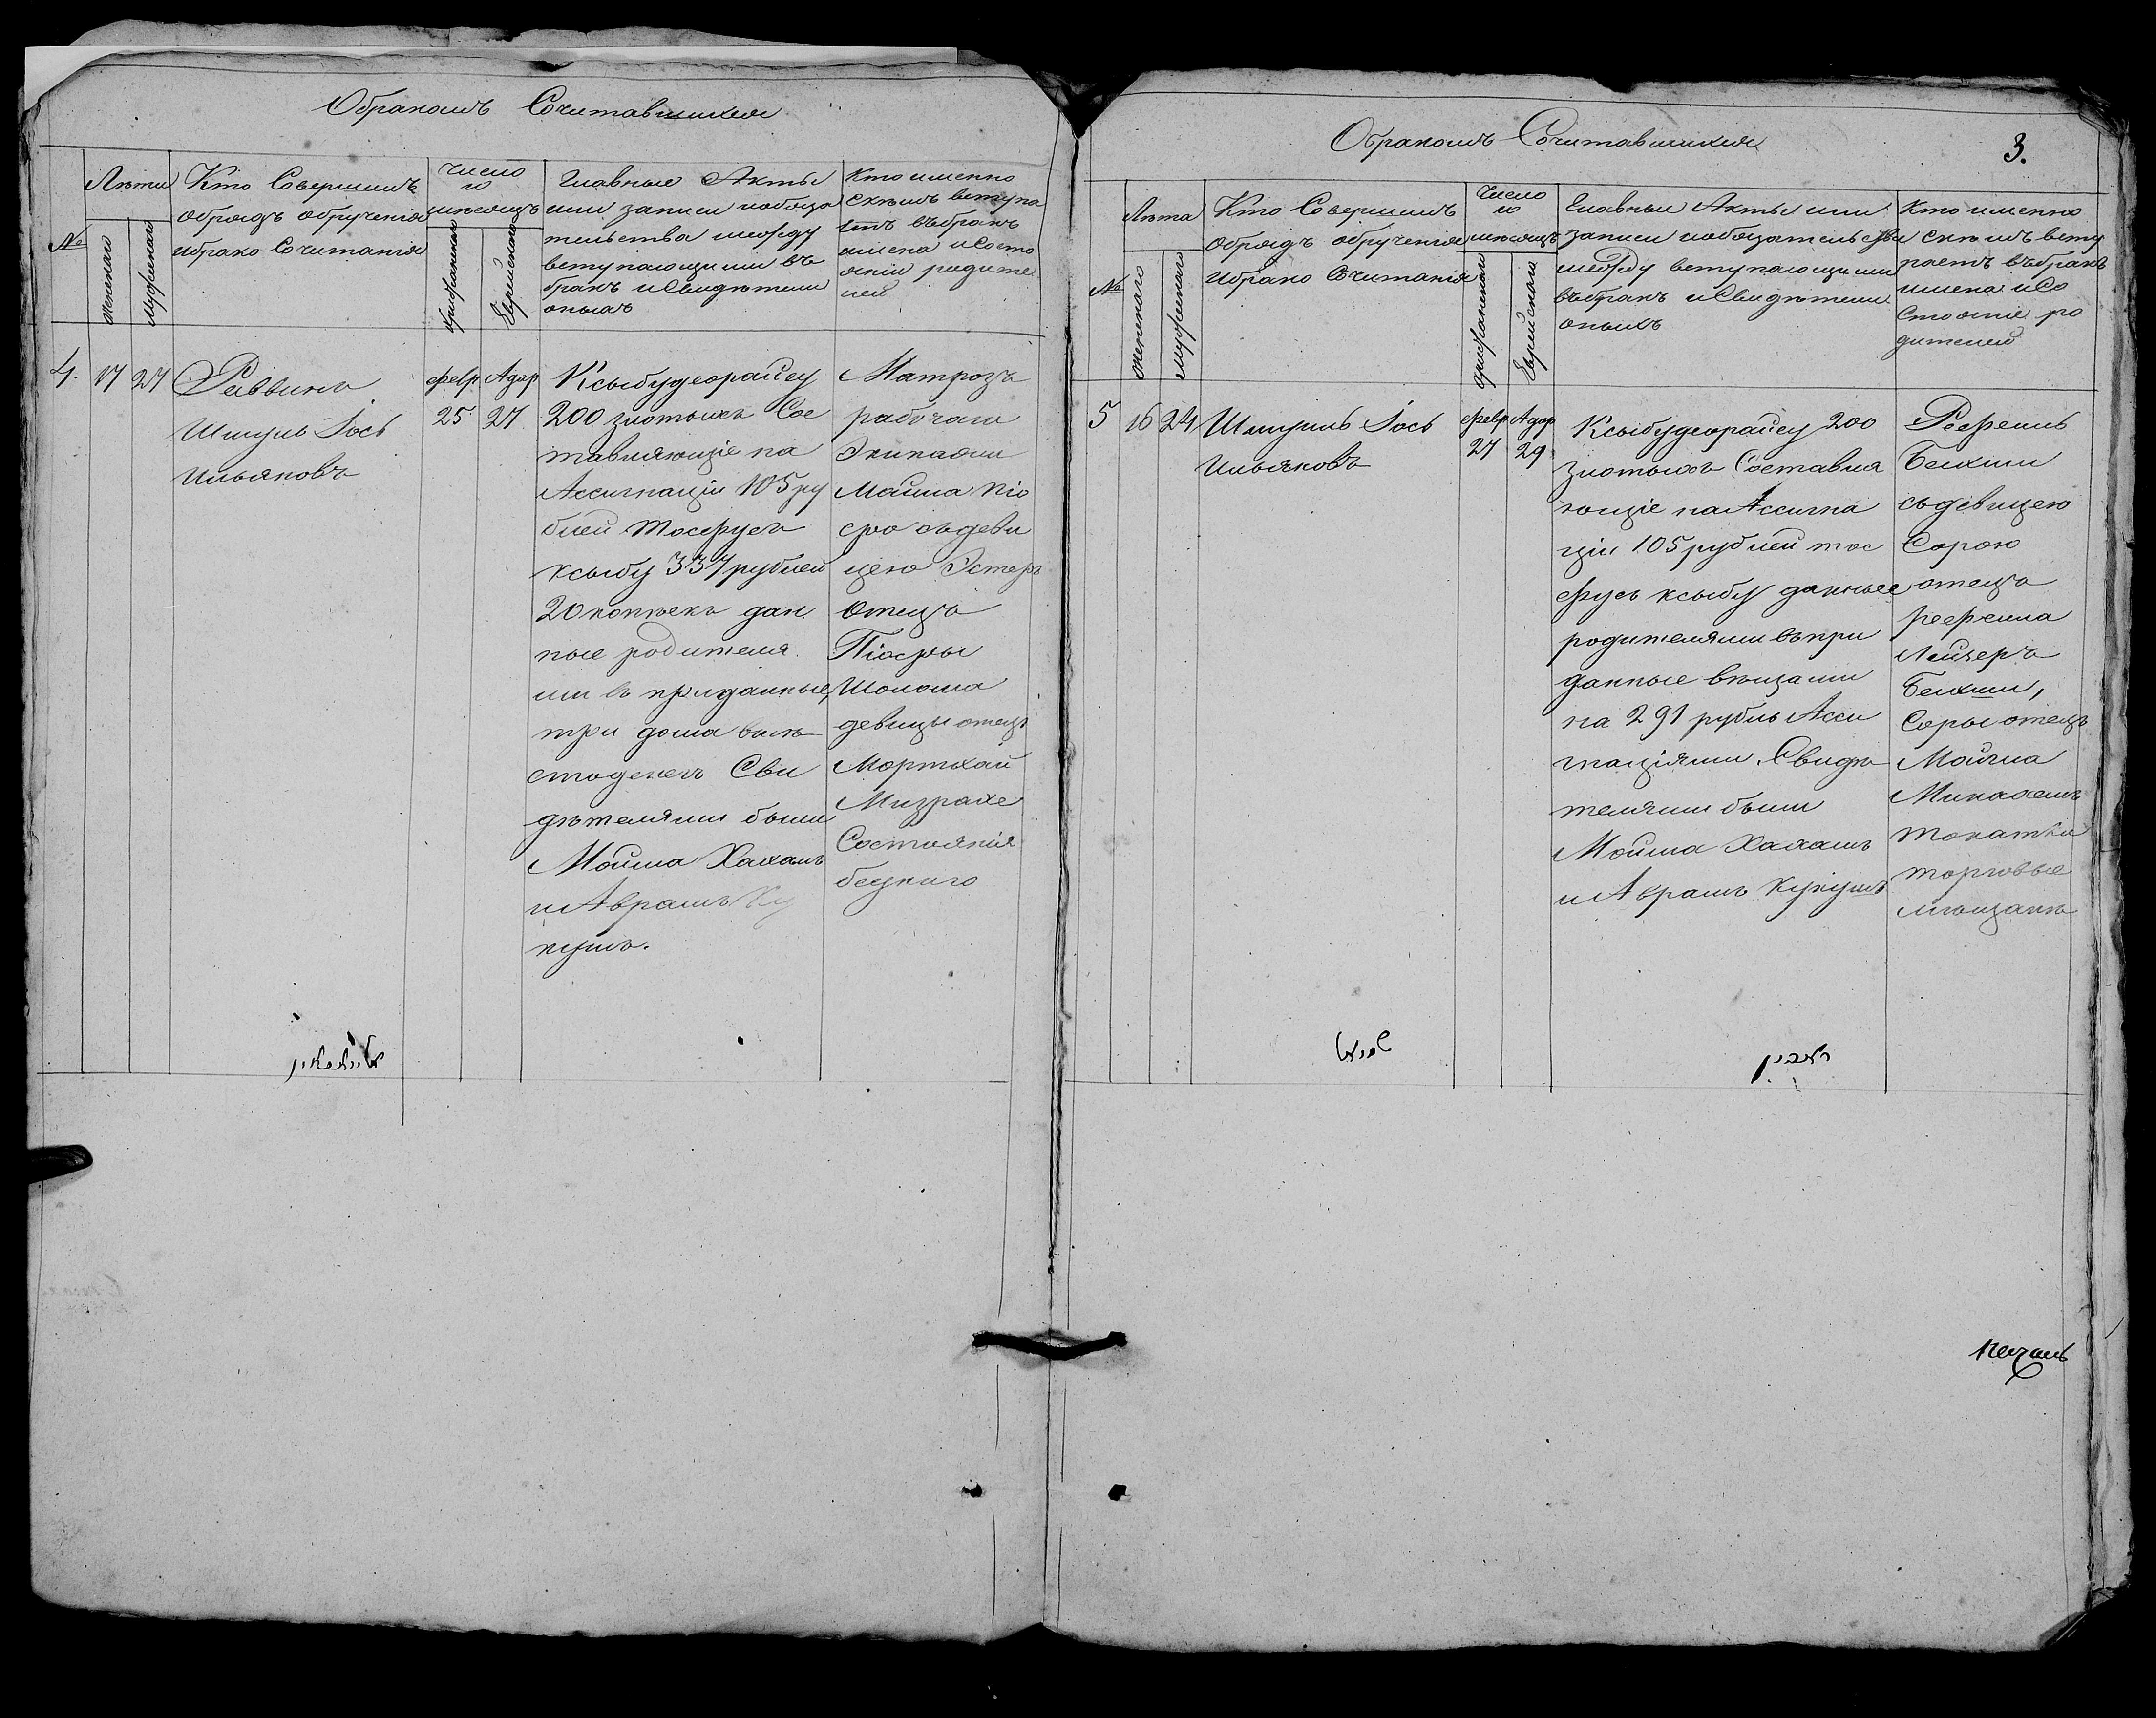 Обракомъ Сочитавшихся
№
Лѣта
Женскаго
Мужескаго
Кто Совершилъ
обрядъ обрученія
ибрако Сочитанія
Число
и
мѣсяцъ
Христіанскаго
Еврейскаго
Главные Акты
или записи иобяза
тельства между
вступающими въ
бракъ иСвидѣтели
оныхъ
Кто именно
скѣмъ вступа
етъ въбракъ
имена иСосто
яніи родите
лей
4. 17 27
Раввинъ
Шмуль Іось
Ильяковъ
февр Адар
25 27
Ксыбудеорайсу
200 злотыхъ Сос
тавляющіе на
Ассигнаціи 105 ру
блей тосефусъ
ксыбу 337 рублей
20 копѣекъ дан
ные родителя
ми въ приданные,
три дома вмѣ
стоденегъ Сви
дѣтелями были
Мойша Хахамъ
и Аврамъ Ку
кушъ.
Матрозъ
рабочаго
Экипажи
Мойша
съдеви
цею Эстеръ
отецъ
Шолома
девицы отецъ
Мортхай
Мизрахе
Состоянія
Обракомъ Сочитавшихся
3.
№
Лѣта
Женскаго
Мужескаго
Кто Совершилъ
обрядъ обрученія
ибрако Сочитанія
Число
и
мѣсяцъ
Христіанскаго
Еврейскаго
Главныи Акты или
записи иобязательства
между вступающими
въбракъ иСвидѣтели
оныхъ
Кто именно
и скѣмъ всту
паетъ въбракъ
имена иСо
стояніе ро
дителей
5 16 24
Шмуиль Іось
Ильяковъ
февр Адар
27 29
Ксыбудеорайсу 200
злотыхъ Составля
ющіе наАссигна
ціи 105 рублей тос
ефусъ ксыбу данные
родителями въпри
данные вѣщами
на 291 рубль Асси
гнаціями. Свидѣ
телями были
Мойша Хахамъ
и Аврамъ Кукушъ
Рефеиль
Бакши
съдевицею
Сорою
отецъ
рефеила
Лейзеръ
Бакши,
Соры отецъ
Мойша
Токатли
торговые
мѣщане
ראבין
печать